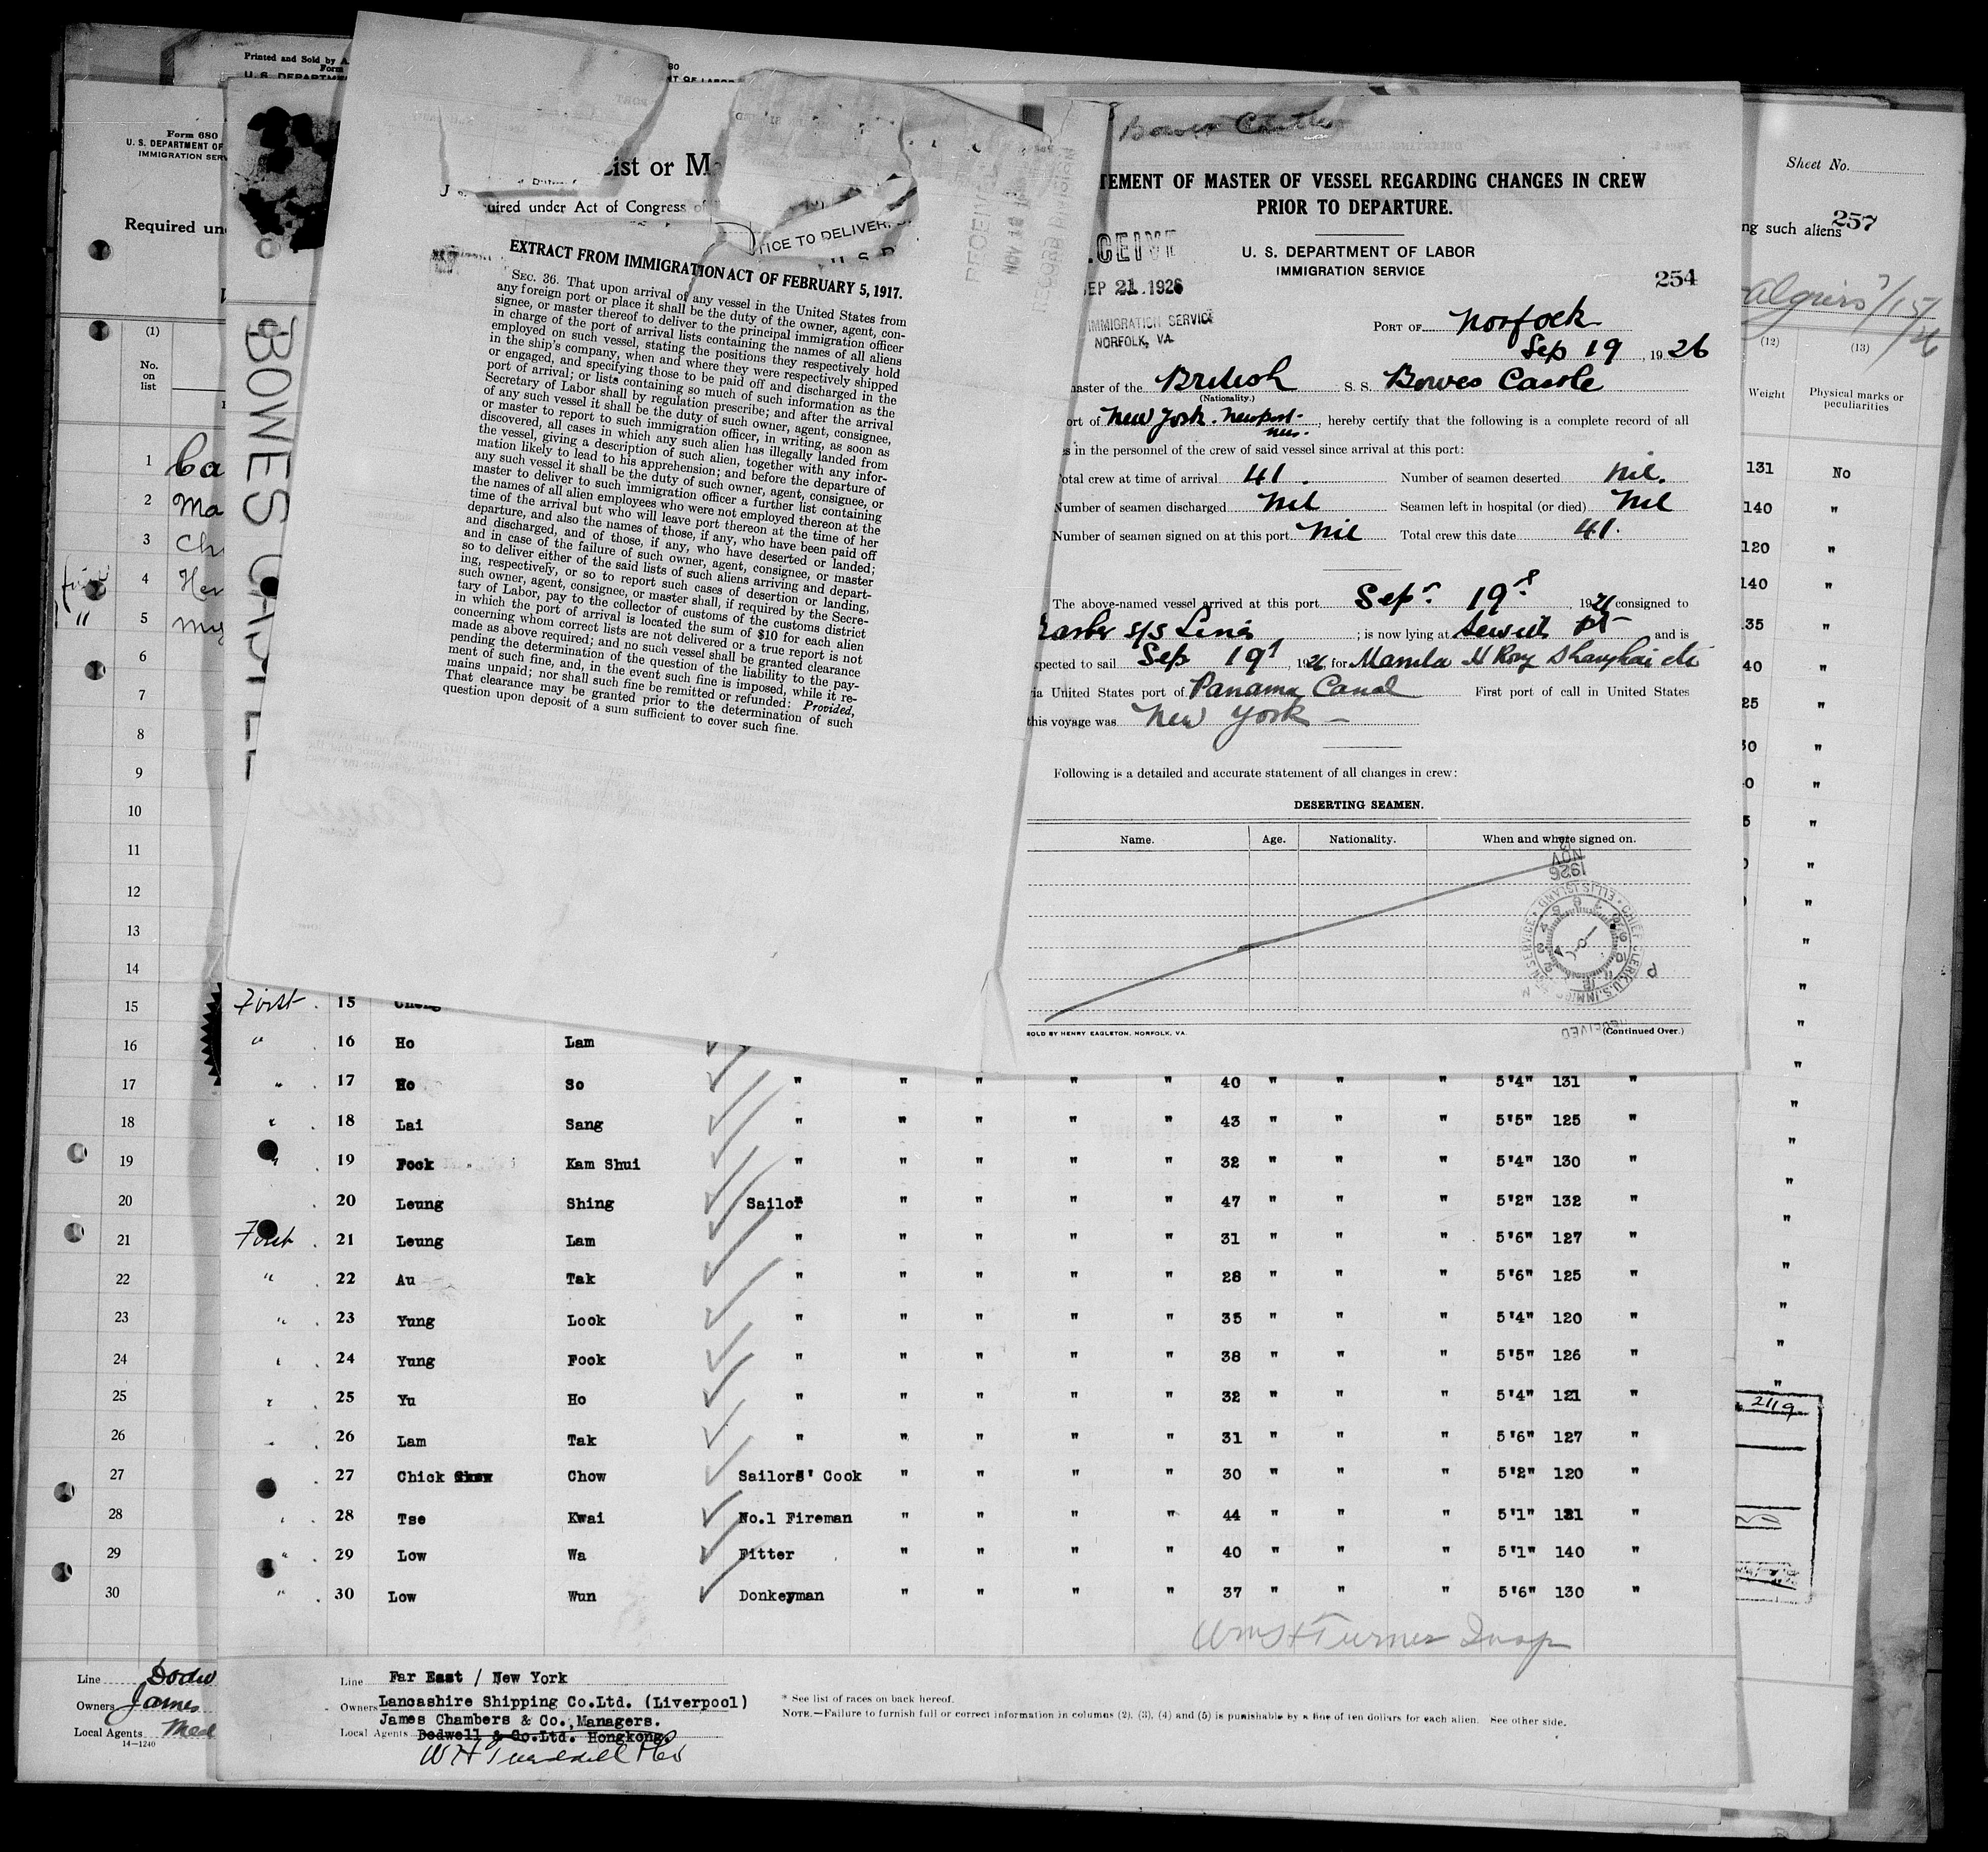 Printed and Sold by A.
Form
U. S. DEPARTMENT
Form 680
U. S. DEPARTMENT OF
IMMIGRATION SERV
Required un
(1)
No.
on
list
1 Ca
2 Ma
3 Ch
4 Hen
" 5 My
6
7
8
9
10
11
12
13
14
15
16
17
18
19
20
21
22
23
24
25
26
27
28
29
30
Line Dodw
Owners James
Local Agents
14-1240
BOWES CASTLE
ist or M
uired under Act of Congress of
ICE TO DELIVER,
RECEIVE
NOV 18
RECORD DIVISION
EXTRACT FROM IMMIGRATION ACT OF FEBRUARY 5, 1917.
SEC. 36. That upon arrival of any vessel in the United States from
any foreign port or place it shall be the duty of the owner, agent, con-
signee, or master thereof to deliver to the principal immigration officer
in charge of the port of arrival lists containing the names of all aliens
employed on such vessel, stating the positions they respectively hold
in the ship's company, when and where they were respectively shipped
or engaged, and specifying those to be paid off and discharged in the
port of arrival; or lists containing so much of such information as the
Secretary of Labor shall by regulation prescribe; and after the arrival
of any such vessel it shall be the duty of such owner, agent, consignee,
or master to report to such immigration officer, in writing, as soon as
discovered, all cases in which any such alien has illegally landed from
the vessel, giving a description of such alien, together with any infor-
mation likely to lead to his apprehension; and before the departure of
any such vessel it shall be the duty of such owner, agent, consignee, or
master to deliver to such immigration officer a further list containing
the names of all alien employees who were not employed thereon at the
time of the arrival but who will leave port thereon at the time of her
departure, and also the names of those, if any, who have been paid off
and discharged, and of those, if any, who have deserted or landed;
and in case of the failure of such owner, agent, consignee, or master
so to deliver either of the said lists of such aliens arriving and depart-
ing, respectively, or so to report such cases of desertion or landing,
such owner, agent, consignee, or master shall, if required by the Secre-
tary of Labor, pay to the collector of customs of the customs district
in which the port of arrival is located the sum of $10 for each alien
concerning whom correct lists are not delivered or a true report is not
made as above required; and no such vessel shall be granted clearance
pending the determination of the question of the liability to the pay-
ment of such fine, and, in the event such fine is imposed, while it re-
mains unpaid; nor shall such fine be remitted or refunded: Provided,
That clearance may be granted prior to the determination of such
question upon deposit of a sum sufficient to cover such fine.
Bowes Castle
TEMENT OF MASTER OF VESSEL REGARDING CHANGES IN CREW
PRIOR TO DEPARTURE.
CEIVE
SEP 21 1926
IMMIGRATION SERVICE
NORFOLK, VA.
U. S. DEPARTMENT OF LABOR
IMMIGRATION SERVICE
254
PORT OF Norfolk
Sep 19, 1926
aster of the British S. S. Bowes Castle
(Nationality.)
ort of New York. Newport
News., hereby certify that the following is a complete record of all
es in the personnel of the crew of said vessel since arrival at this port:
otal crew at time of arrival 41. Number of seamen deserted Nil.
Number of seamen discharged Nil Seamen left in hospital (or died) Nil
Number of seamen signed on at this port Nil Total crew this date 41.
The above-named vessel arrived at this port Sepr. 19, 1926 consigned to
Barber S/S Lines; is now lying at Sewells Pt and is
xpected to sail Sep 19, 1926 for Manila H Kong Shanghai etc
ia United States port of Panama Canal First port of call in United States
this voyage was New York
Following is a detailed and accurate statement of all changes in crew:
DESERTING SEAMEN.
Name. Age. Nationality. When and where signed on.
NOV
1926
CHIEF CLERK, U.S. IMMIGRATION SERVICE ELLIS ISLAND
RECEIVED
SOLD BY HENRY EAGLETON, NORFOLK, VA. (Continued Over.)
Sheet No.
ng such aliens 257
Algiers 7/15/26
(12) (13)
Weight Physical marks or
peculiarities
131 No
140 "
120 "
140 "
35 "
40 "
25 "
30 "
0 "
5 "
2119
First . 15 Cheng
" . 16 Ho Lam
" . 17 Ho So " " " " " 40 " " " 5'4" 131 "
" . 18 Lai Sang " " " " " 43 " " " 5'5" 125 "
" . 19 Fock Kam Shui " " " " " 32 " " " 5'4" 130 "
. 20 Leung Shing Sailor " " " " 47 " " " 5'2" 132 "
First . 21 Leung Lam " " " " " 31 " " " 5'6" 127 "
" . 22 Au Tak " " " " " 28 " " " 5'6" 125 "
" . 23 Yung Look " " " " " 35 " " " 5'4" 120 "
" . 24 Yung Fook " " " " " 38 " " " 5'5" 126 "
" . 25 Yu Ho " " " " " 32 " " " 5'4" 121 "
" . 26 Lam Tak " " " " " 31 " " " 5'6" 127 "
. 27 Chick Chow Sailors' Cook " " " " 30 " " " 5'2" 120 "
" . 28 Tse Kwai No.1 Fireman " " " " 44 " " " 5'1" 121 "
" . 29 Low Wa Fitter " " " " 40 " " " 5'1" 140 "
" . 30 Low Wun Donkeyman " " " " 37 " " " 5'6" 130 "
Wm H Turner Insp
Line Far East / New York
Owners Lancashire Shipping Co.Ltd. (Liverpool)
James Chambers & Co., Managers.
Local Agents Dodwell & Co.Ltd. Hongkong.
* See list of races on back hereof.
NOTE.—Failure to furnish full or correct information in columns (2), (3), (4) and (5) is punishable by a fine of ten dollars for each alien. See other side.